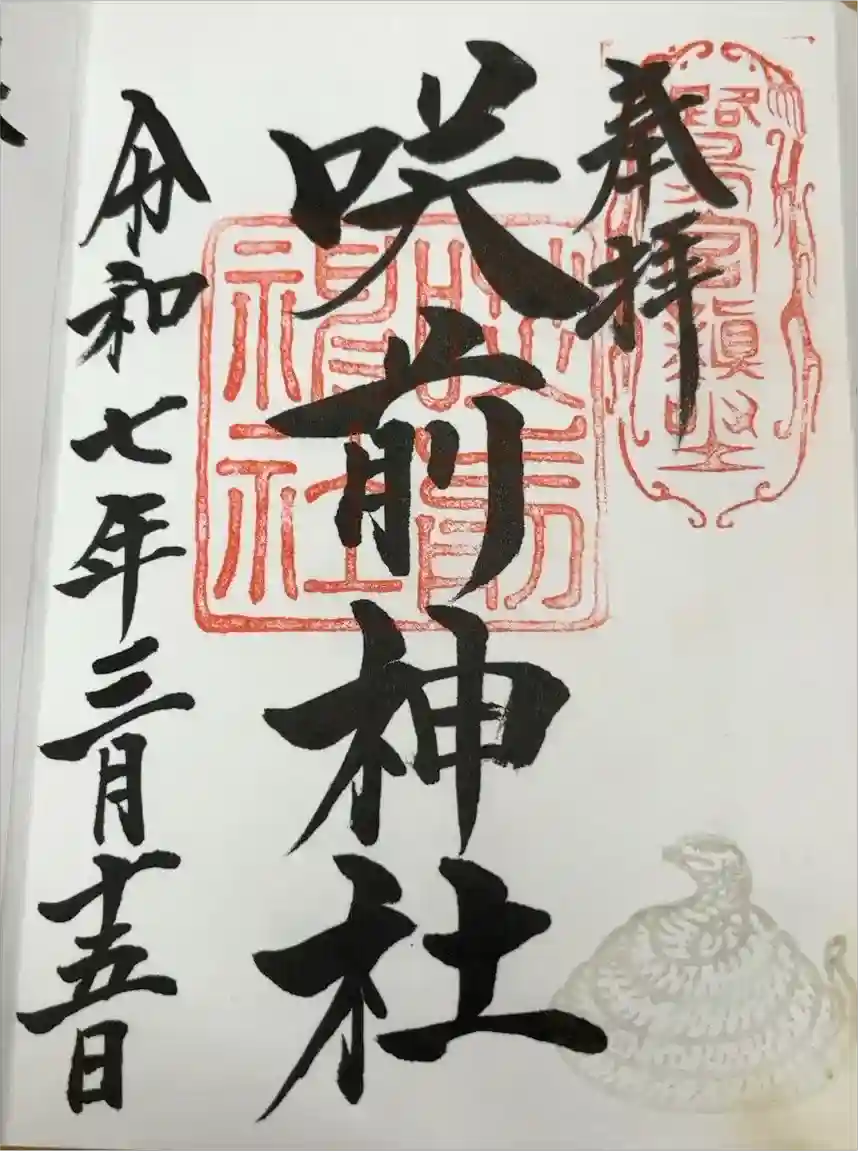 奉拝
咲前神社
咲前
神社
令和七年三月十五日